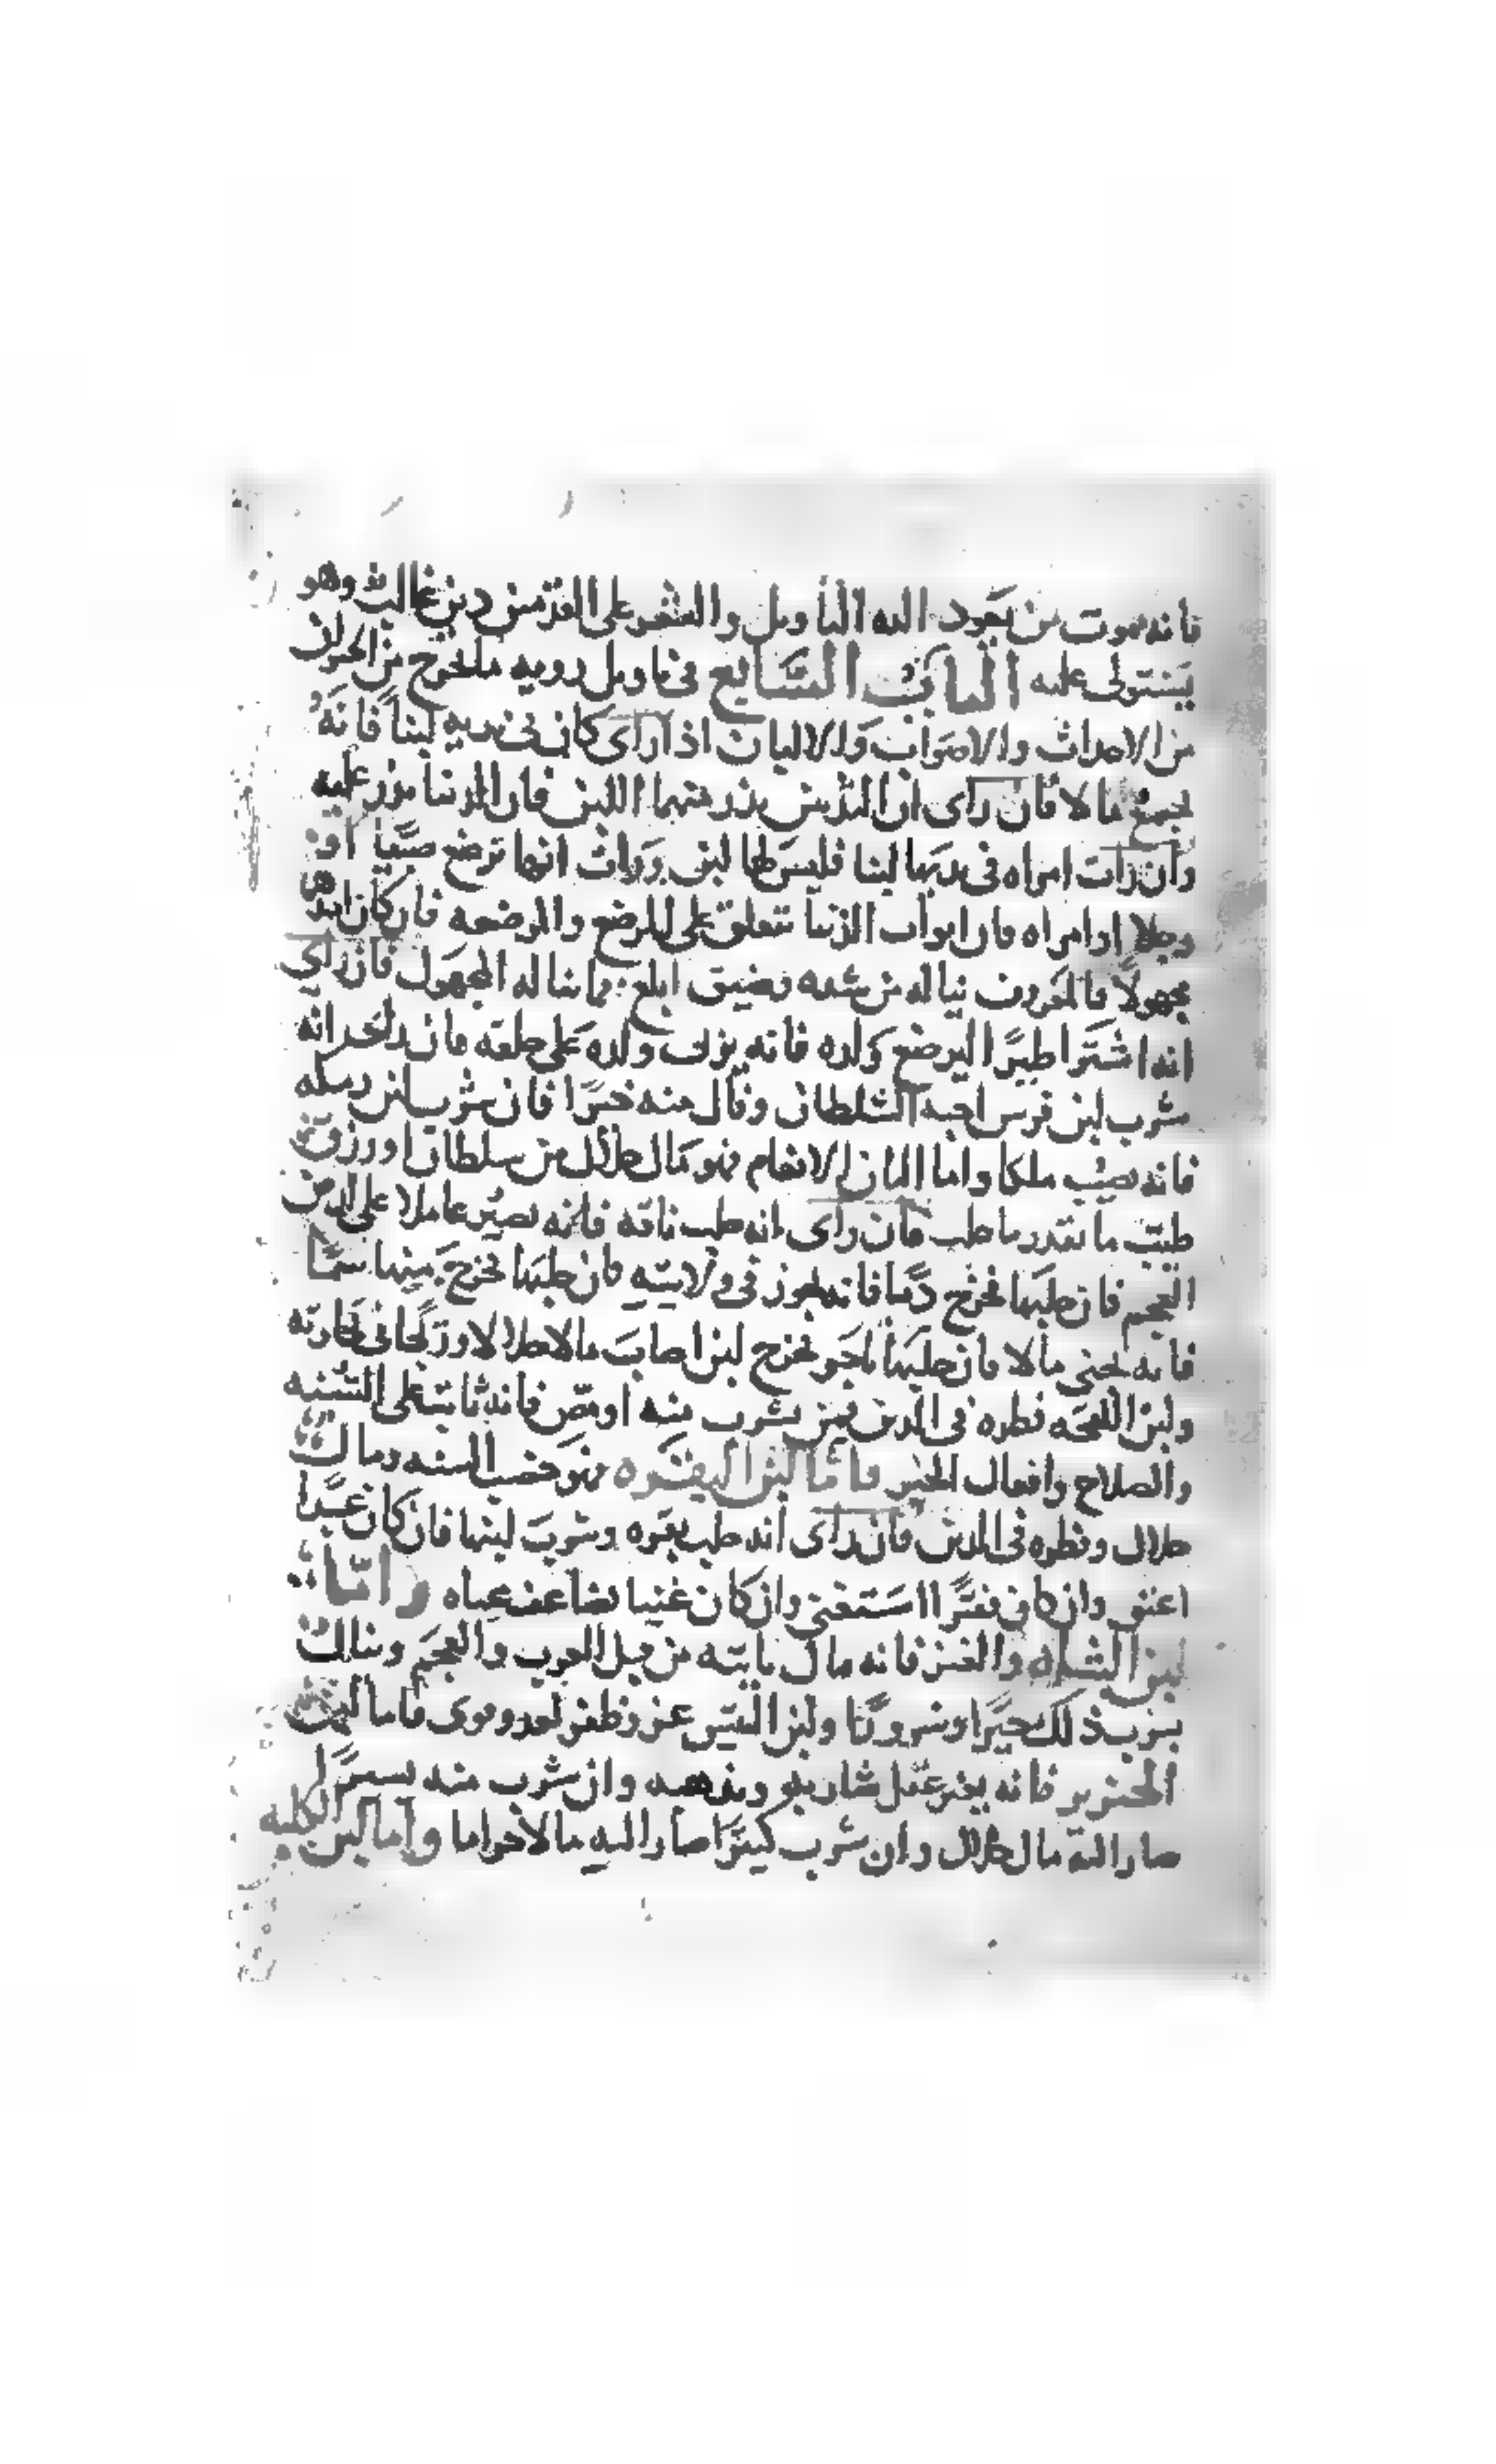 فانه يموت من يعود اليه التأويل والشعر على القدمين دين غالب وهو
يستولى عليه الباب السابع فى تاويل رويه ما يخرج من الحيوان
من الاحداث والاصوات والالبان اذا راى كان فى ثدييه لبنا فانه
يجمع مالا فان راى ان الثديين يدر منهما اللبن فان الدنيا تدر عليه
وان رات امراه فى ثديها لبنا فليس لها لبن ورات انها ترضع صبيا او
رجلا او امراه فان ابواب الدنيا تتعلق على المرضع والمرضعه فان كان
مجهولا فالمعروف يناله من شده وضيق ابلغ مما يناله المجهول فان راى
انه اشترا طيرا ليرضع ولده فانه يربى ولده على خلقه فان راى انه
شرب لبن فرس احبه السلطان ونال منه خيرا فان شرب لبن رمكه
فانه يصيب ملكا واما البان الانعام فهو مال حلال من سلطان او رزق
طيب ما بقدر ما حلب فان راى انه حلب ناقه فانه يصير عاملا على
العجم فان حلبها فخرج دما فانه يجوز فى ولايته فان حلبها فخرج منها سما
فانه يجنى مالا فان حلبها تاجر فخرج لبن اصاب مالا حلالا وربحا فى تجارته
ولبن اللقحه فطره فى الدين فمن شرب منه او مص فانه ثابت على السنه
والصلاح وافعال الخير فاما لبن البقره فهو خصب السنه ومال
حلال وفطره فى الدين فان راى انه حلب بقره وشرب لبنها فان كان عبدا
اعتق وان كان فقيرا استغنى وان كان غنيا تضاعف غناه واما
لبن الشاه والعنز فانه مال ياتيه من قبل العرب والعجم وينال
بشرب ذلك خيرا وسرورا ولبن التيس عز وظفر بعدو قوى فاما لبن
الخنزير فانه يغير عقل شاربه ويذهبه وان شرب منه يسيرا
صار اليه مال حلال وان شرب كثيرا صار اليه مالا حراما واما لبن الكلبه